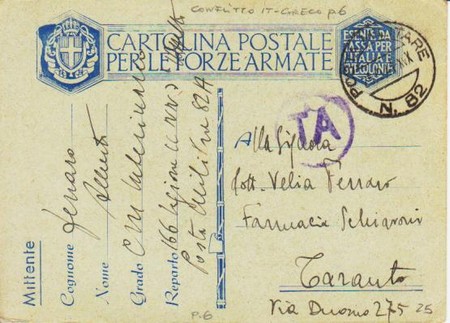 CONFLITTO IT-GRECO p6
CARTOLINA POSTALE
PER LE FORZE ARMATE
ESENTE DA
TASSA PER
L'ITALIA E
LE COLONIE
POSTA MILITARE
N. 82
TA
Mittente
Cognome Ferraro
Nome Alberto
Grado C M
Reparto 166 Legione
Posta Militare 82 A
Alla Signora
Dott. Velia Ferraro
Farmacia
Taranto
Via Duomo 275
25
P-6